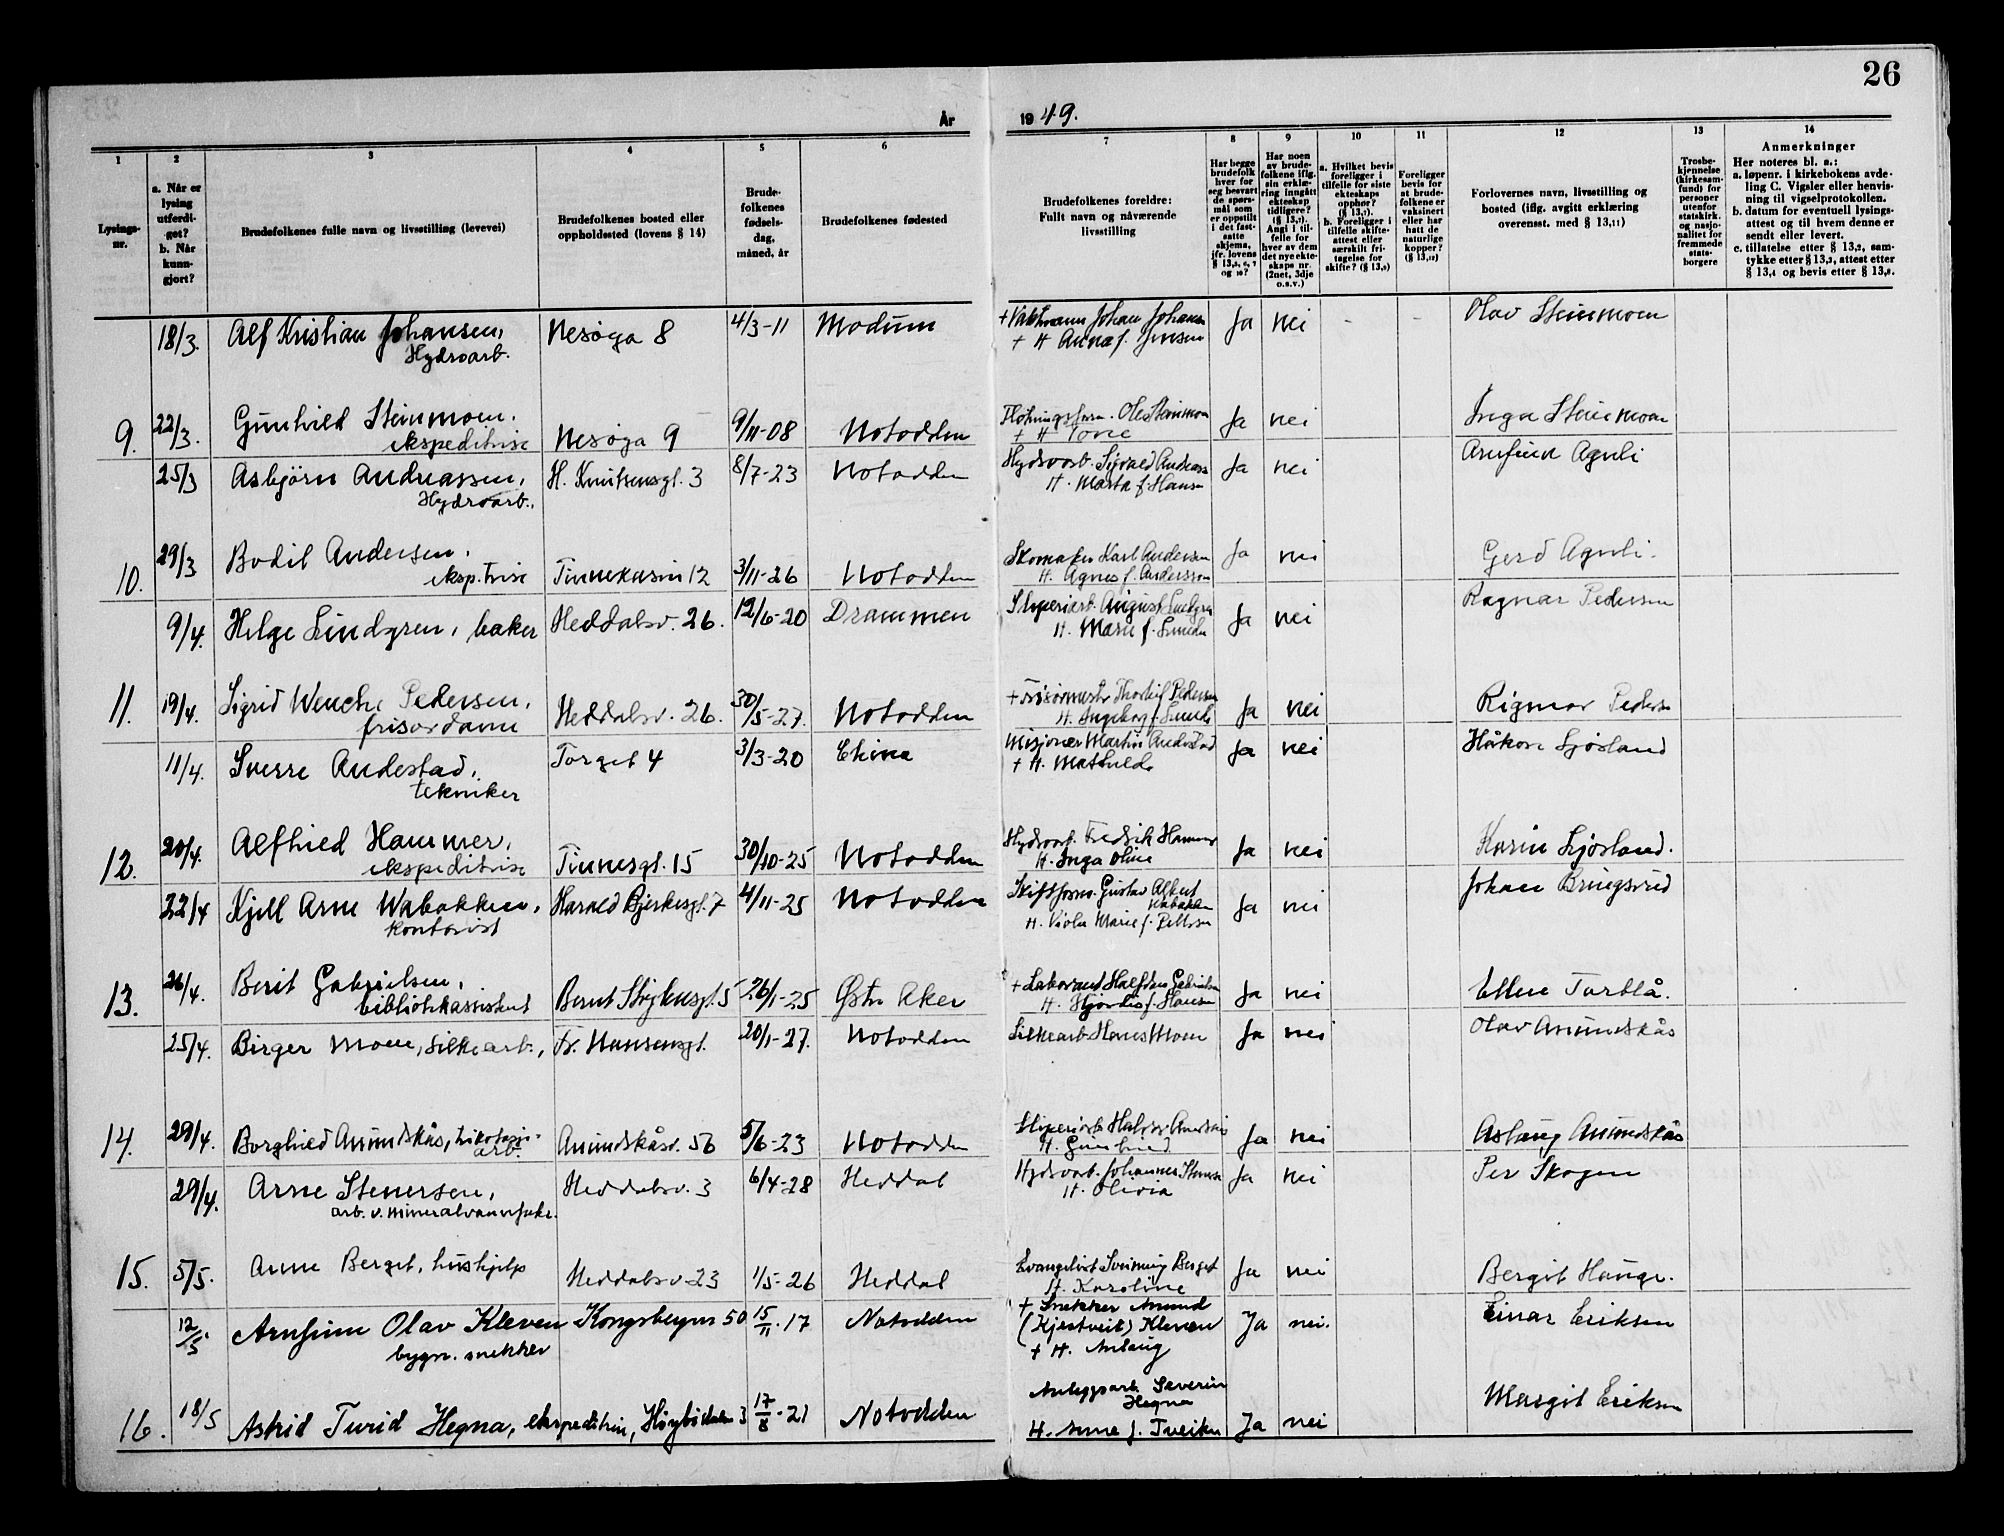 26
År 1949.
1 2 3 4 5 6 7 8 9 10 11 12 13 14
Lysings-nr.
a. Når er lysing utferdiget? b. Når kunngjort?
Brudefolkenes fulle navn og livsstilling (levevei)
Brudefolkenes bosted eller oppholdssted (lovens § 14)
Brudefolkenes fødselsdag, måned, år
Brudefolkenes fødested
Brudefolkenes foreldre: Fullt navn og nåværende livsstilling
Har begge brudefolk hver for seg besvart de spørsmål som er oppstilt i det fastsatte skjema, jfr. lovens
Har noen av brudefolkene iflg. sin erklæring inngått ekteskap tidligere? (§ 13,1). Angi i tilfelle for hver av dem det nye ekteskaps nr. (2net, 3dje o.s.v.)
a. Hvilket bevis foreligger i tilfelle for siste ekteskaps opphør? (§ 13,1)
b. Foreligger i tilfelle skifteattest eller særskilt fritagelse for skifte?
Foreligger bevis for at brudefolkene er vaksinert eller har hatt de naturlige kopper? (§ 13,12)
Forlovernes navn, livsstilling og bosted (iflg. avgitt erklæring overensst. med § 13,11)
Trosbekjennelse (kirkesamfund) for personer utenfor statskirk. og nasjonalitet for fremmede statsborgere
Anmerkninger
Her noteres bl. a.:
a. løpenr. i kirkebokens avdeling C. Vigsler eller henvisning til vigselprotokollen.
b. datum for eventuell lysingsattest og til hvem denne er sendt eller levert.
c. tillatelse etter § 13,2, samtykke etter § 13,3, attest etter § 13,4 og bevis etter § 13,8.
18/3. Alf Kristian Johansen, Nesøga 8 4/3-11 Modum Johan Ja nei - - Olav Steinmoen
Hydroarb. + H Anna f. Jensen
9. 22/3. Gunhild Steinmoen, Nesøga 9 9/11-08 Notodden Ole Steinmoen Ja nei Inga Steinmoen
ekspeditrise + H Tone
25/3 Asbjørn Andreassen, H. Knutsensgt. 3 8/7-23 Notodden Hydroarb. Sigvald Ja nei Arnfinn Agnli
Hydroarb. H. Marta f. Hansen
10. 29/3 Bodil Andersen, Tinnekasin 12 3/11-26 Notodden Skomaker Karl Andersen Ja nei Gerd Agnli.
eksp.trise H. Agnes f. Andersson
9/4. Helge Lindgren, baker Heddalsv. 26. 12/6-20 Drammen Sliperiarb. August Lindgren Ja nei Ragnar Pedersen
H. Marie f. Lunde
11. 19/4. Sigrid Wenche Pedersen, Heddalsv. 26. 30/5-27. Notodden + Frisørmester Thorleif Pedersen Ja nei Rigmor Pedersen
frisørdame H. Ingeborg f. Lunde
11/4. Sverre Andestad, Torget 4 3/3-20 China Misjonær Martin Andestad Ja nei Håkon Sjøsland
tekniker + H. Mathilde
12. 20/4. Alfhild Hammer, Tinnesgt. 15 30/10-25 Notodden Hydroarb. Fredrik Hammer Ja nei Karin Sjøsland.
ekspeditrise H. Inga Oline
22/4 Kjell Arne Wabakken, Harald Bjerkesgt. 7 4/11-25 Notodden Skiftform. Gustav Albert Wabakken Ja nei Johan Bringsrud
kontorist H. Viola Marie f. Pettersen
13. 26/4. Berit Gabrielsen, Bernt Stigtensgt. 5 26/1-25 Østre Aker + Laborant Halfdan Gabrielsen Ja nei Ellen Torblå.
bibliotekassistent H. Hjørdis f. Hansen
25/4. Birger Moen, Silkearb., Fr. Hansensgt. 20/1-27. Notodden Silkearb. Hans Moen Ja nei Olav Anundskås
14. 29/4. Borghild Anundskås, trikotasje-arb. Anundskåsv. 56 5/6-23 Notodden Sliperiarb. Halvor Anundskås Ja nei Aslaug Anundskås
H. Gunhild
29/4. Arne Stenersen, Heddalsv. 3 6/4-28 Heddal Hydroarb. Johannes Stenersen Ja nei Per Skogen
arb. v. mineralvannfabr. H. Olivia
15. 5/5. Anne Berget, hushjelp Heddalsv. 23 1/5-26 Heddal Evangelist Sveinung Berget Ja nei Bergit Hauge.
H. Karoline
12/5 Arnfinn Olav Kleven Kongsbergvn 50 15/11-17 Notodden + Snekker Amund (Kjestveit) Kleven Ja nei. Einar Eriksen
bygn. snekker + H. Aslaug
16. 18/5 Astrid Turid Hegna, ekspeditrise, Høgbudalen 3 17/8-21 Notodden Anleggsarb. Severin Hegna Ja nei Margit Eriksen
H. Anne f. Tveiten